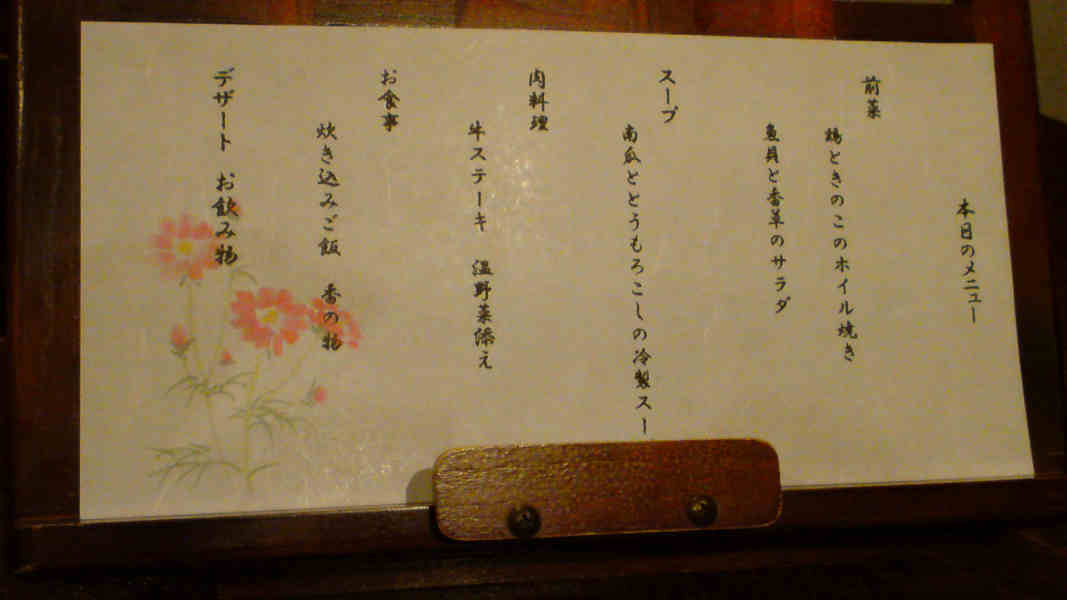 本日のメニュー
前菜
鶏ときのこのホイル焼き
魚貝と香草のサラダ
スープ
南瓜ととうもろこしの冷製スー
肉料理
牛ステーキ　温野菜添え
お食事
炊き込みご飯　香の物
デザート　お飲み物